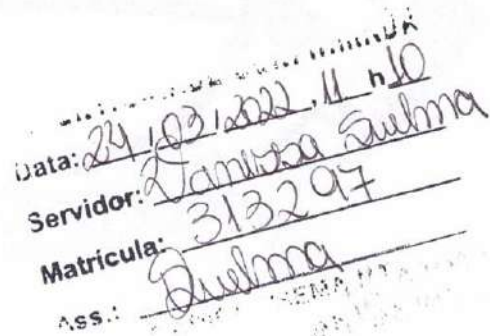 Data: 24/03/2022, 11 h 10
Servidor: Vanessa Suelma
Matrícula: 313297
Ass.: Suelma